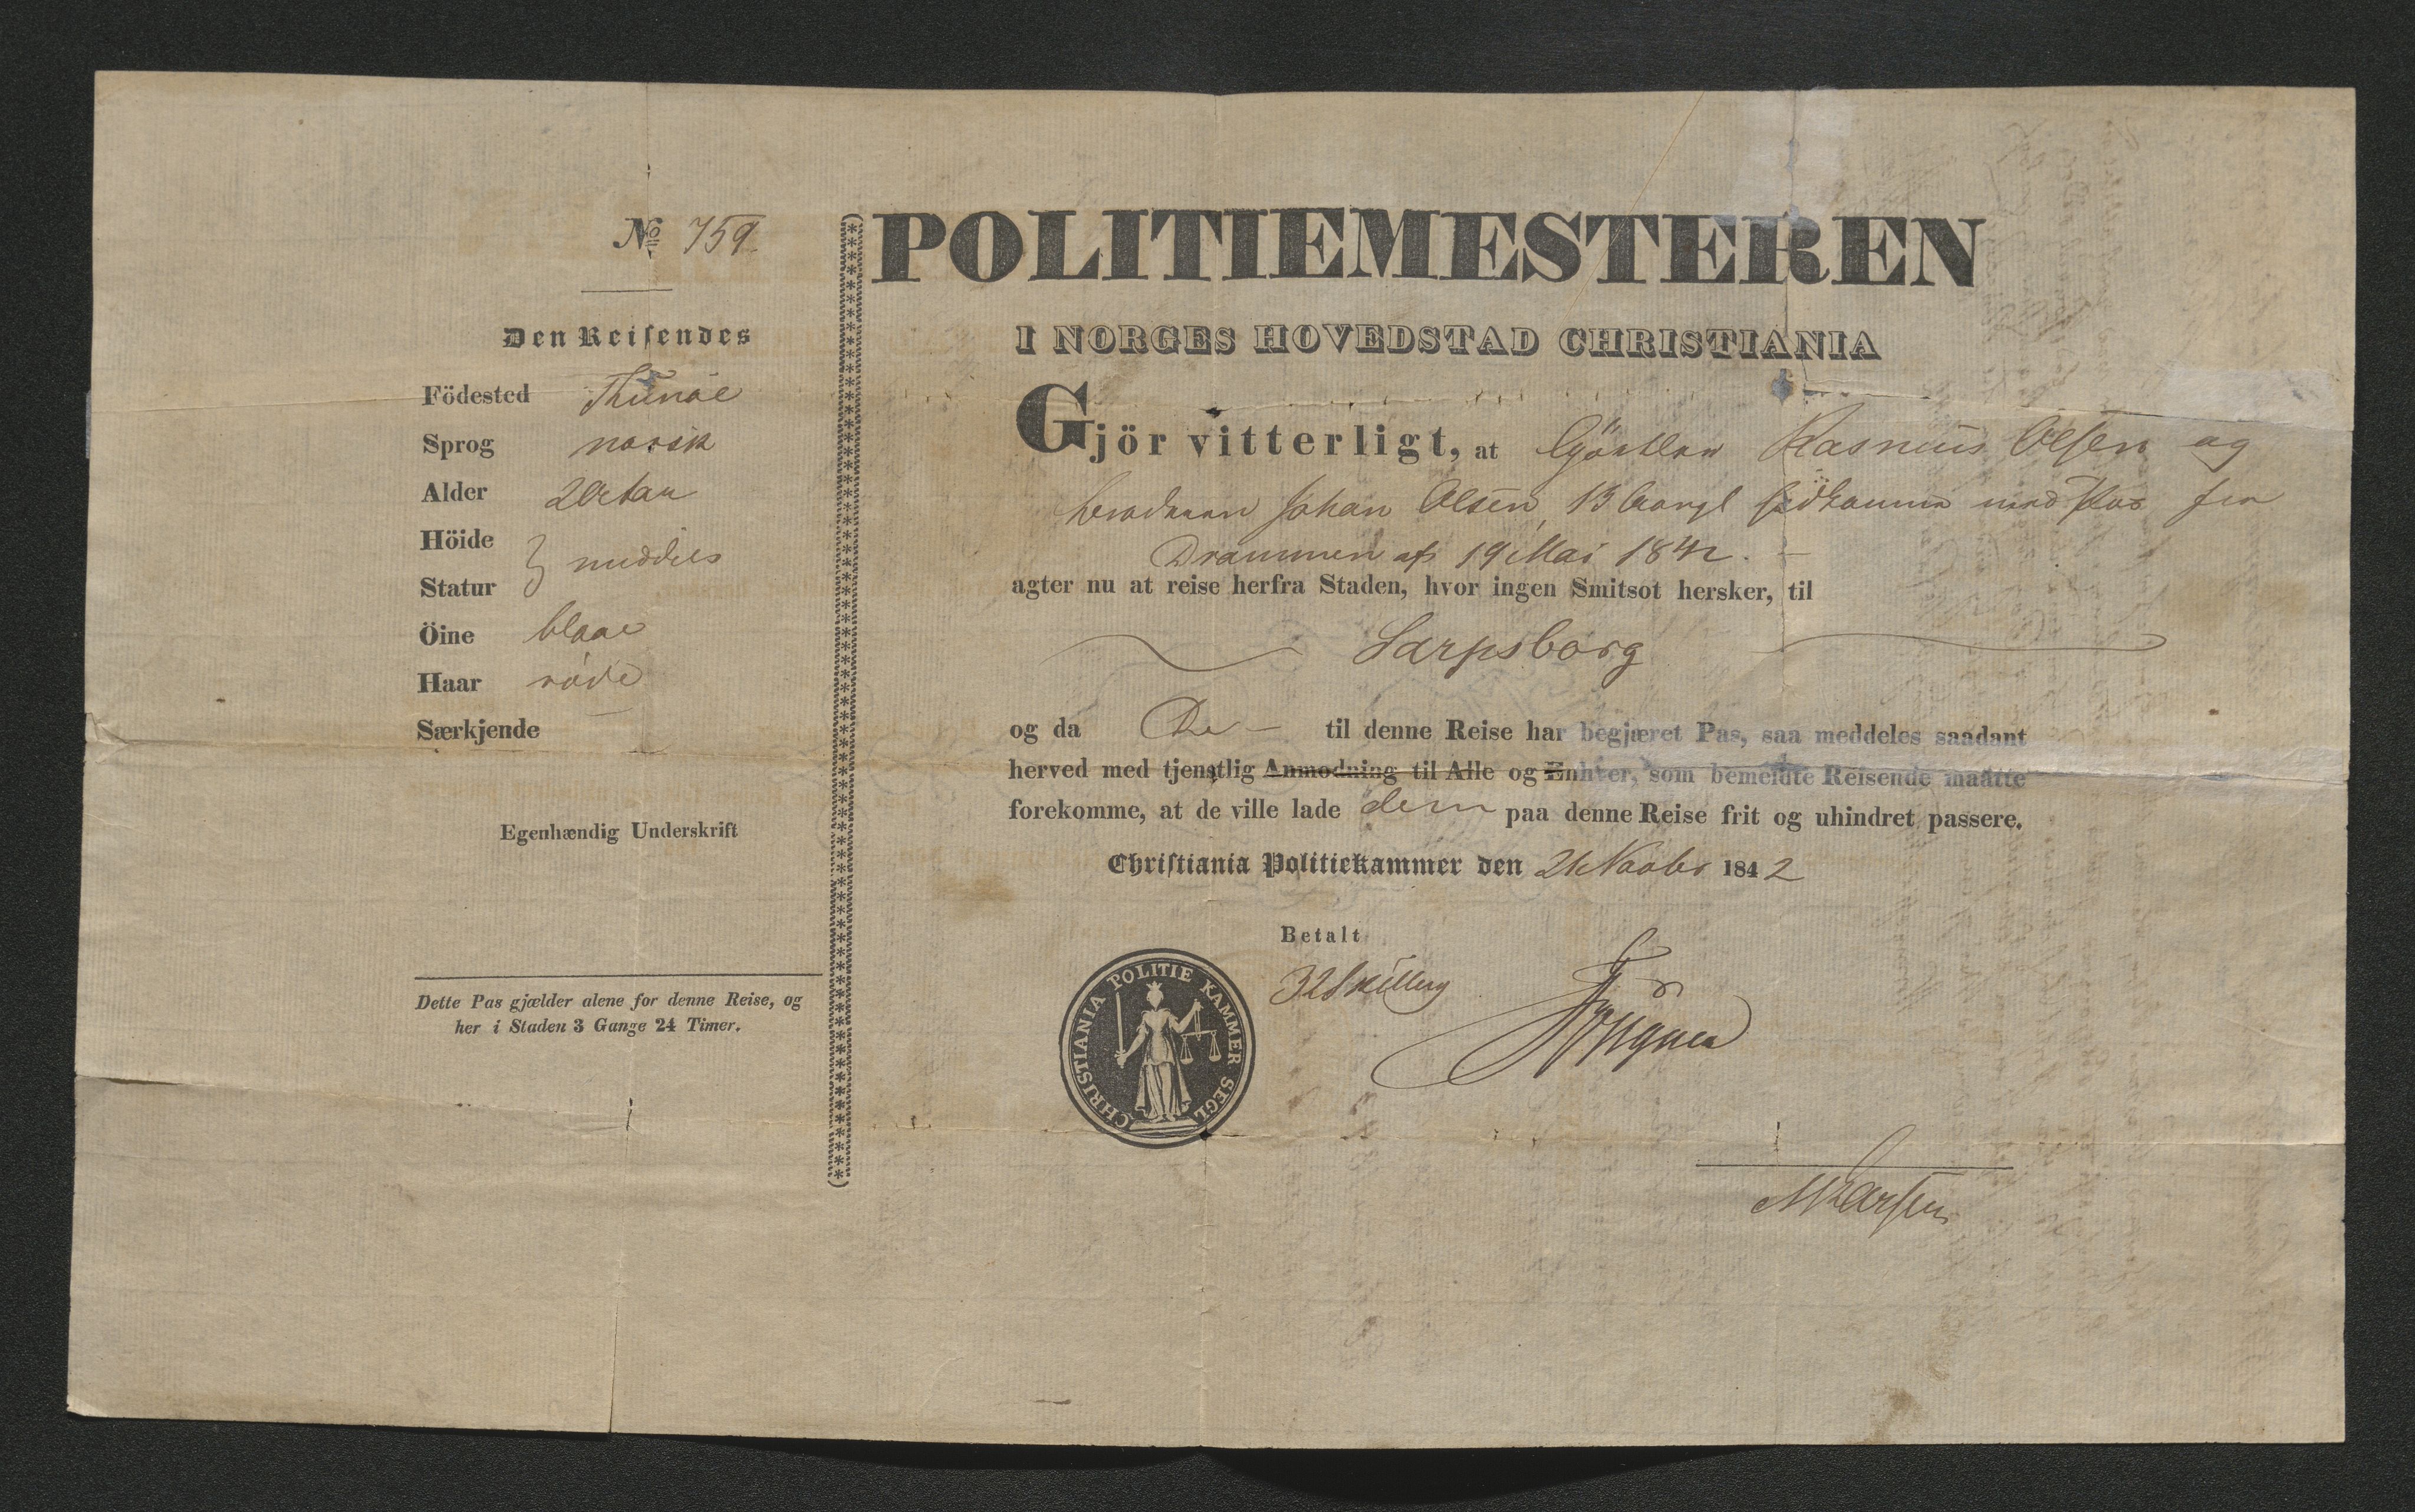 № 759
Den Reisendes
Födested Thunöe
Sprog norsk
Alder
Höide
Statur } middels
Öine blaae
Haar röde
Særkjende —
Egenhændig Underskrift
Dette Pas gjælder alene for denne Reise, og
her i Staden 3 Gange 24 Timer.
POLITIEMESTEREN
I NORGES HOVEDSTAD CHRISTIANIA
Gjör vitterligt, at Gjörtler Rasmus Olsen og
Johan Olsen, 13 Aar med Pas fra
Drammen af 19 Mai 1842. —
agter nu at reise herfra Staden, hvor ingen Smitsot hersker, til
Sarpsborg
og da De — til denne Reise har begjæret Pas, saa meddeles saadant
herved med tjenstlig Anmodning til Alle og Enhver, som bemeldte Reisende maatte
forekomme, at de ville lade dem paa denne Reise frit og uhindret passere.
Christiania Politiekammer den 21 Novbr 1842
Betalt
32 Skilling
CHRISTIANIA POLITIE KAMMER SEGL
MLarsen